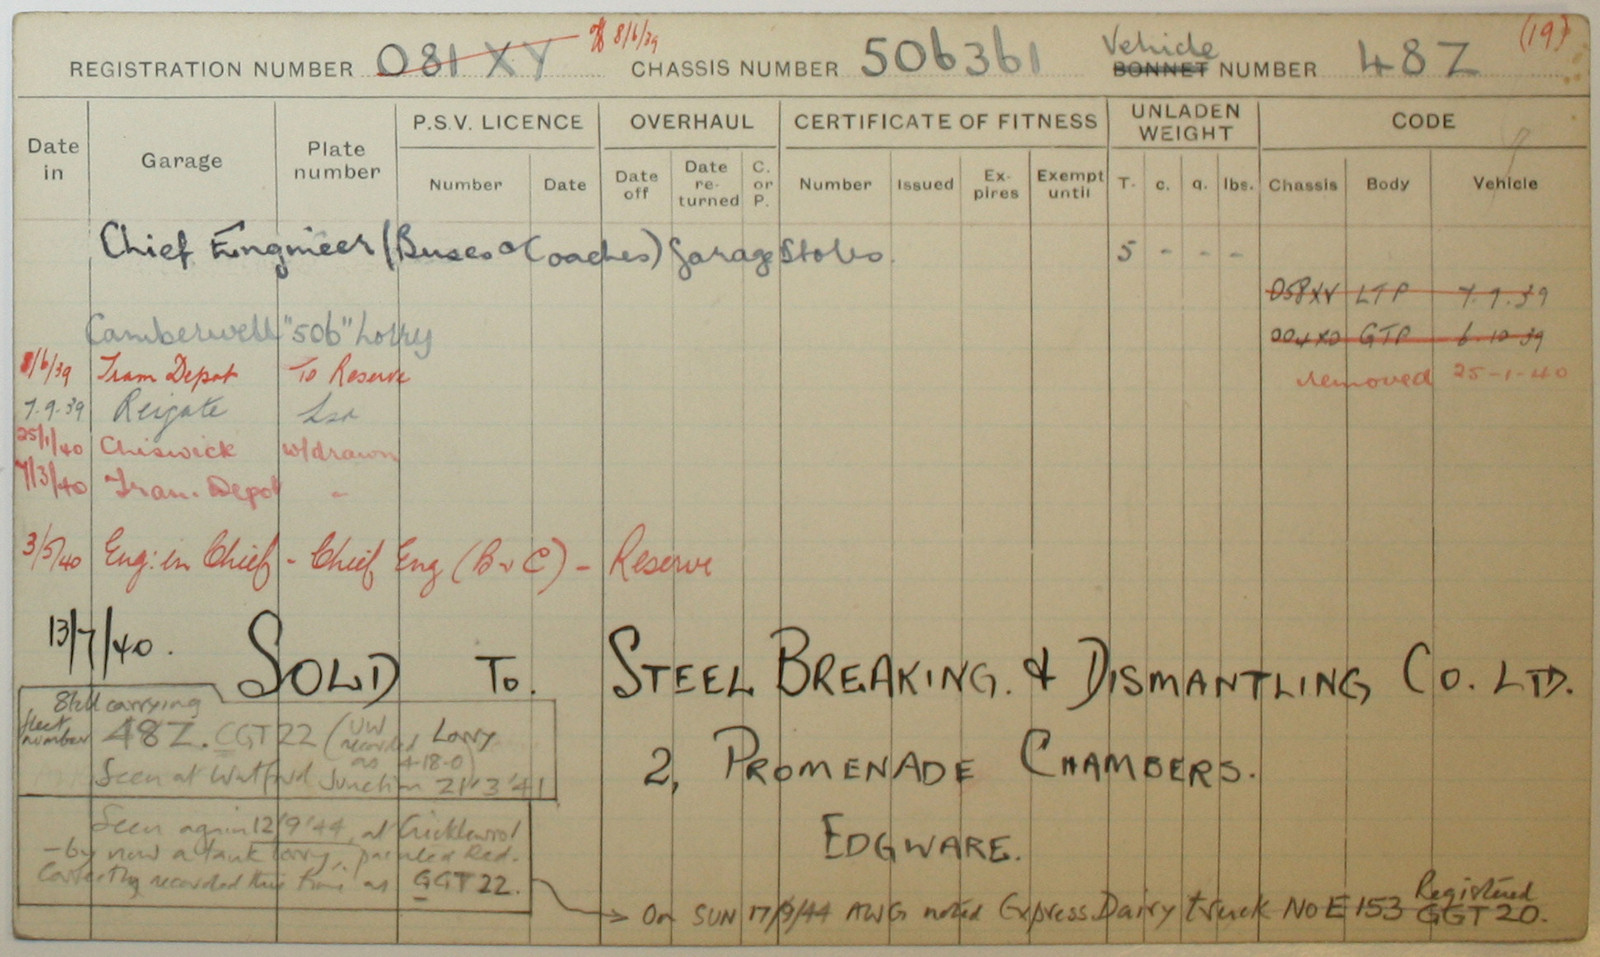 (19)
REGISTRATION NUMBER 081 XY 8/6/39 CHASSIS NUMBER 506361 Vehicle BONNET NUMBER 48Z
Date in Garage Plate number P.S.V. LICENCE OVERHAUL CERTIFICATE OF FITNESS UNLADEN WEIGHT CODE
Number Date Date off Date re-turned C. or P. Number Issued Ex-pires Exempt until T. c. q. lbs. Chassis Body Vehicle
Chief Engineer (Buses & Coaches) Garage Stores. 5 - - -
058XY LTP 7.9.39
Camberwell "506" Lorry 004XO GTP 6.10.39
8/6/39 Tram Depot To Reserve removed 25-1-40
7.9.39 Reigate
25/1/40 Chiswick w/drawn
7/3/40 Tram. Depot -
3/5/40 Eng: in Chief - Chief Eng (B & C) - Reserve
13/7/40. SOLD To. STEEL BREAKING. & DISMANTLING Co. LTD.
2, PROMENADE CHAMBERS.
EDGWARE.
Still carrying
fleet number 48Z. CGT 22 (UW recorded as 4-18-0) Lorry
Seen at Watford Junction 21'3'41
Seen again 12'9'44, at Cricklewood
- by now a tank lorry, painted Red.
Correctly recorded this time as GGT 22.
On SUN 17/9/44 AWG noted Express Dairy truck No E 153 Registered GGT 20.